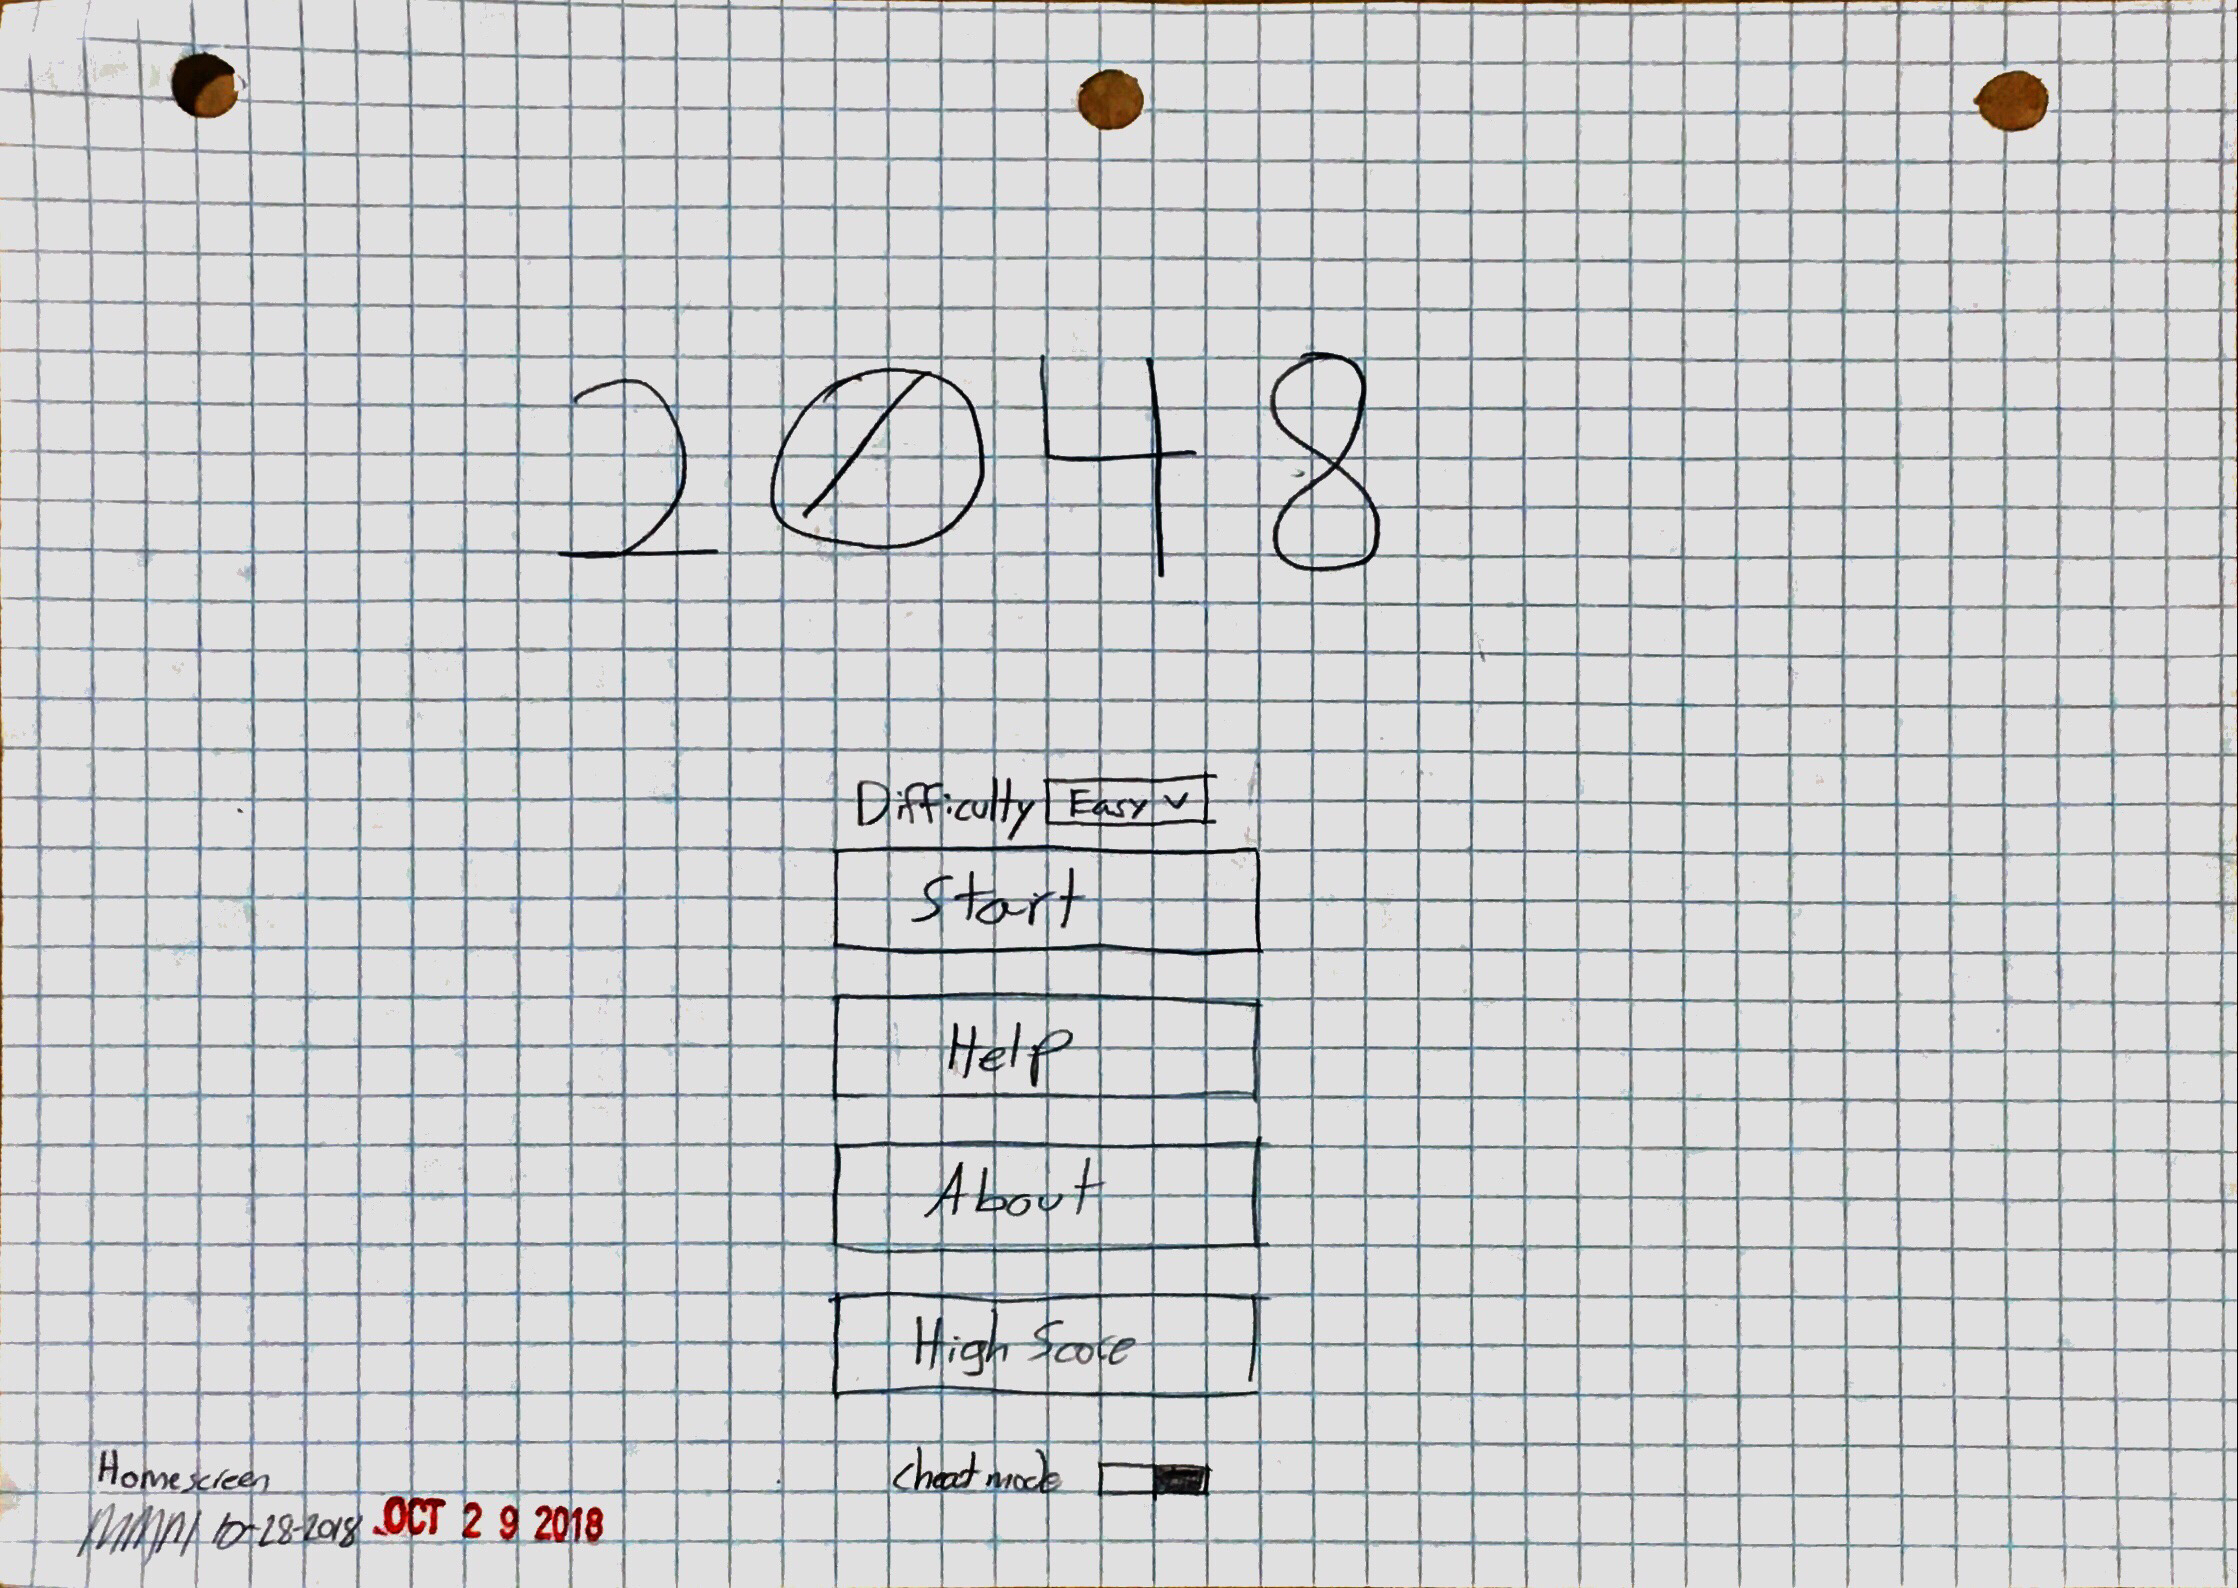 2048
Difficulty Easy
Start
Help
About
High Score
cheat mode
Homescreen
10-28-2018 OCT 29 2018